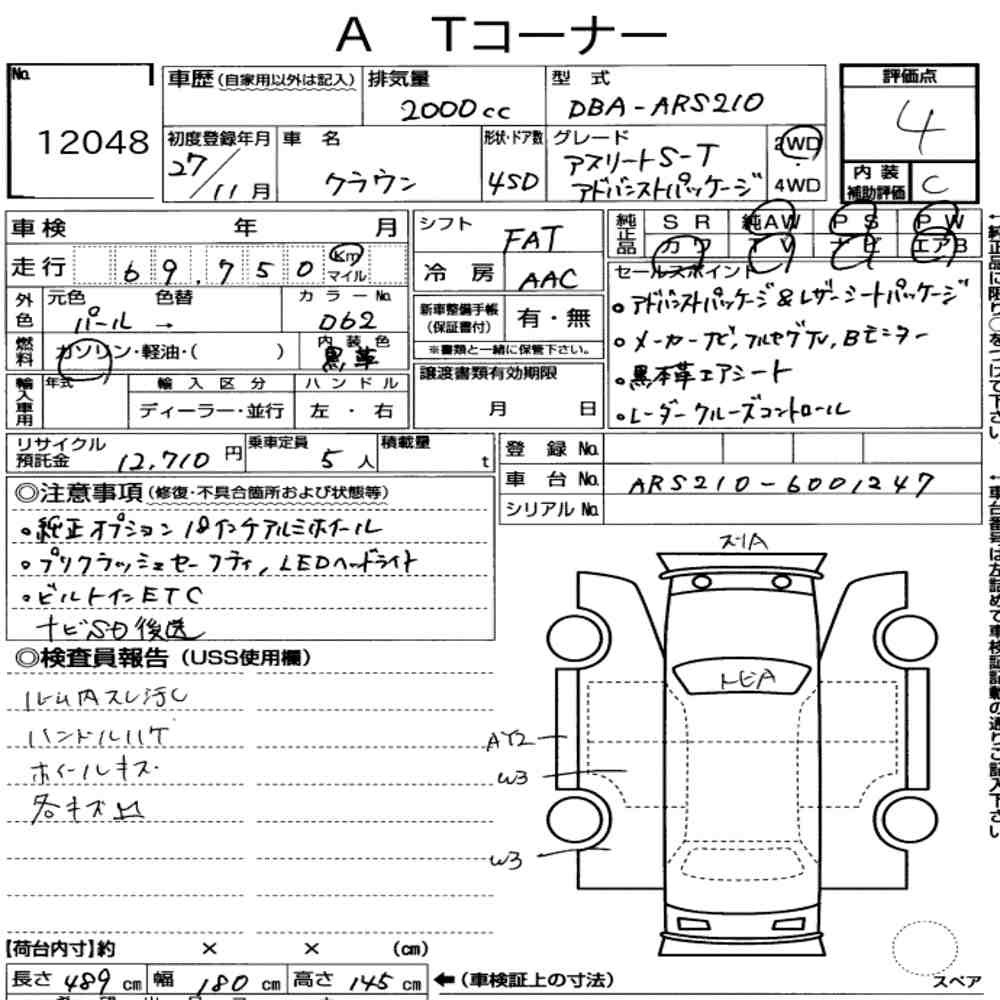 A Tコーナー
No. 12048
車歴(自家用以外は記入)
排気量 2000cc
型式 DBA-ARS210
評価点 4
内装補助評価 C
初度登録年月 27/11月
車名 クラウン
形状・ドア数 4SD
グレード アスリートS-T アドバンストパッケージ
2WD
4WD
車検 年 月
走行 69,750 Km マイル
シフト FAT
冷房 AAC
純正品 SR 純AW PS PW
カワ TV ナビ エアB
外色 元色 色替 カラーNo.
パール → 062
燃料 ガソリン・軽油・( )
内装色 黒革
新車整備手帳(保証書付) 有・無
※書類と一緒に保管下さい。
輸入車用 年式 輸入区分 ハンドル
ディーラー・並行 左・右
譲渡書類有効期限
月 日
セールスポイント
・アドバンストパッケージ&レザーシートパッケージ
・メーカーナビ,フルセグTV,Bモニター
・黒本革エアシート
・レーダークルーズコントロール
リサイクル預託金 12,710円
乗車定員 5人
積載量 t
登録No.
車台No. ARS210-6001247
シリアルNo.
◎注意事項(修復・不具合箇所および状態等)
・純正オプション18インチアルミホイール
・プリクラッシュセーフティ,LEDヘッドライト
・ビルトインETC
ナビSD後送
◎検査員報告(USS使用欄)
ルーム内スレ汚レ
ハンドルハゲ
ホイールキズ
各キズ凹
スリA
トビA
AY2
W3
W3
【荷台内寸】約 × × (cm)
長さ 489cm 幅 180cm 高さ 145cm
←(車検証上の寸法)
スペア
←純正品に限り○をつけて下さい。
←車台番号は左詰めで車検証記載の通りご記入下さい。